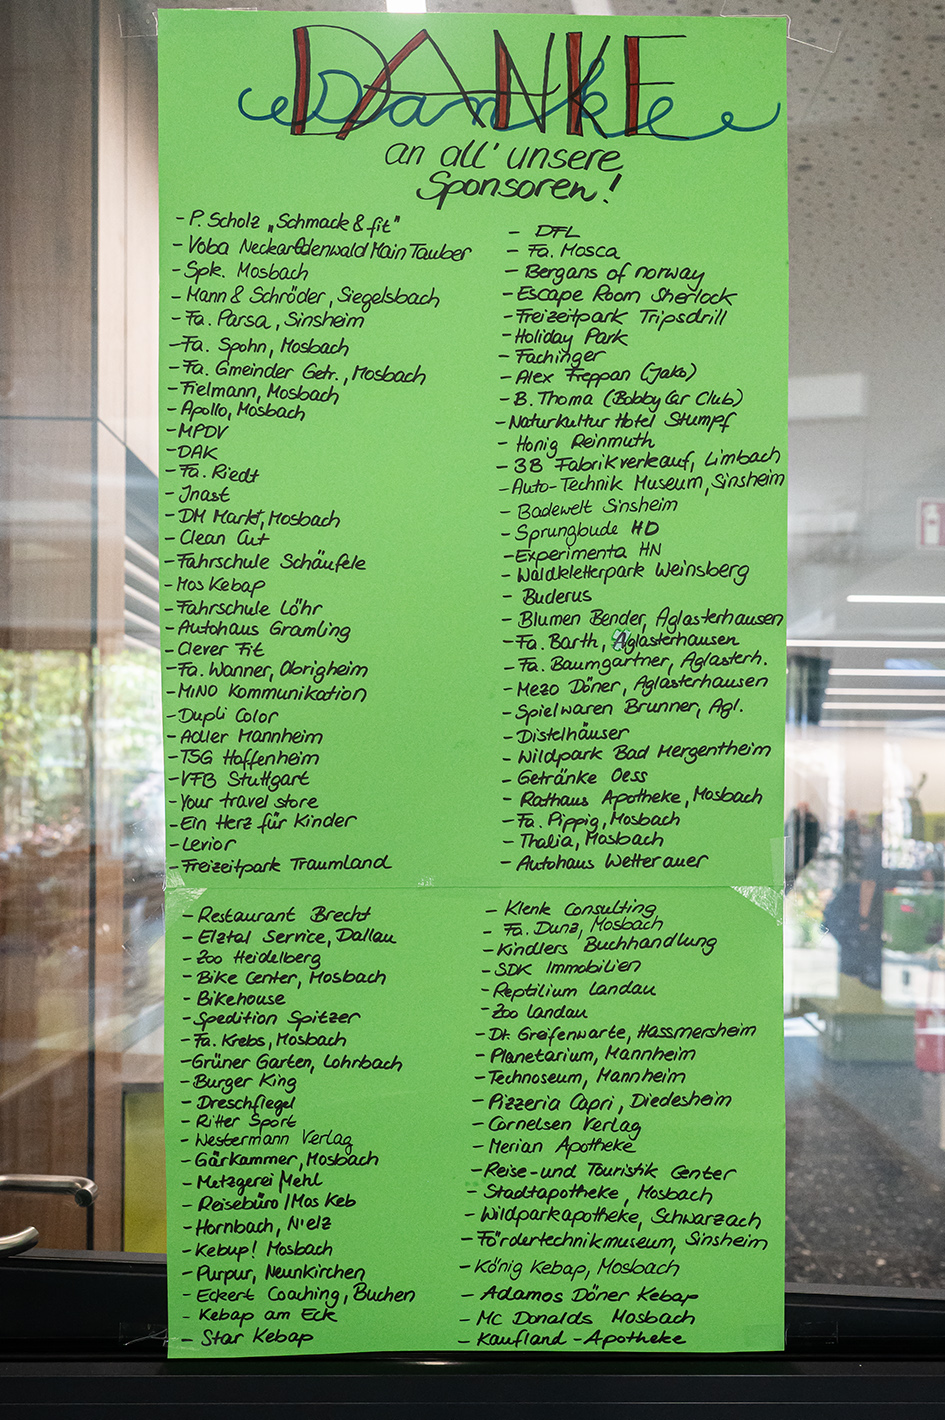 DANKE
Danke
an all' unsere
Sponsoren!
- P. Scholz „Schmack & fit"
- Voba Neckar Odenwald Main Tauber
- Spk. Mosbach
- Mann & Schröder, Siegelsbach
- Fa. Parsa, Sinsheim
- Fa. Spohn, Mosbach
- Fa. Gmeinder Getr., Mosbach
- Fielmann, Mosbach
- Apollo, Mosbach
- MPDV
- DAK
- Fa. Riedt
- Inast
- DM Markt, Mosbach
- Clean Cut
- Fahrschule Schäufele
- Mos Kebap
- Fahrschule Löhr
- Autohaus Gramling
- Clever Fit
- Fa. Wanner, Obrigheim
- MINO Kommunikation
- Dupli Color
- Adler Mannheim
- TSG Hoffenheim
- VFB Stuttgart
- Your travel store
- Ein Herz für Kinder
- Levior
- Freizeitpark Traumland
- DFL
- Fa. Mosca
- Bergans of norway
- Escape Room Sherlock
- Freizeitpark Tripsdrill
- Holiday Park
- Fachinger
- Alex Freppan (Jako)
- B. Thoma (Bobby Car Club)
- Naturkultur Hotel Stumpf
- Honig Reinmuth
- 3B Fabrikverkauf, Limbach
- Auto-Technik Museum, Sinsheim
- Badewelt Sinsheim
- Sprungbude HD
- Experimenta HN
- Waldkletterpark Weinsberg
- Buderus
- Blumen Bender, Aglasterhausen
- Fa. Barth, Aglasterhausen
- Fa. Baumgartner, Aglasterh.
- Mezo Döner, Aglasterhausen
- Spielwaren Brunner, Agl.
- Distelhäuser
- Wildpark Bad Mergentheim
- Getränke Oess
- Rathaus Apotheke, Mosbach
- Fa. Pippig, Mosbach
- Thalia, Mosbach
- Autohaus Wetterauer
- Restaurant Brecht
- Elztal Service, Dallau
- Zoo Heidelberg
- Bike Center, Mosbach
- Bikehouse
- Spedition Spitzer
- Fa. Krebs, Mosbach
- Grüner Garten, Lohrbach
- Burger King
- Dreschflegel
- Ritter Sport
- Westermann Verlag
- Gärkammer, Mosbach
- Metzgerei Mehl
- Reisebüro / Mos Keb
- Hornbach, N'elz
- Kebup! Mosbach
- Purpur, Neunkirchen
- Eckert Coaching, Buchen
- Kebap am Eck
- Star Kebap
- Klenk Consulting
- Fa. Dunz, Mosbach
- Kindlers Buchhandlung
- SDK Immobilien
- Reptilium Landau
- Zoo landau
- Dt. Greifenwarte, Hassmersheim
- Planetarium, Mannheim
- Technoseum, Mannheim
- Pizzeria Capri, Diedesheim
- Cornelsen Verlag
- Merian Apotheke
- Reise- und Touristik Center
- Stadtapotheke, Mosbach
- Wildparkapotheke, Schwarzach
- Fördertechnikmuseum, Sinsheim
- König Kebap, Mosbach
- Adamos Döner Kebap
- Mc Donalds Mosbach
- Kaufland - Apotheke